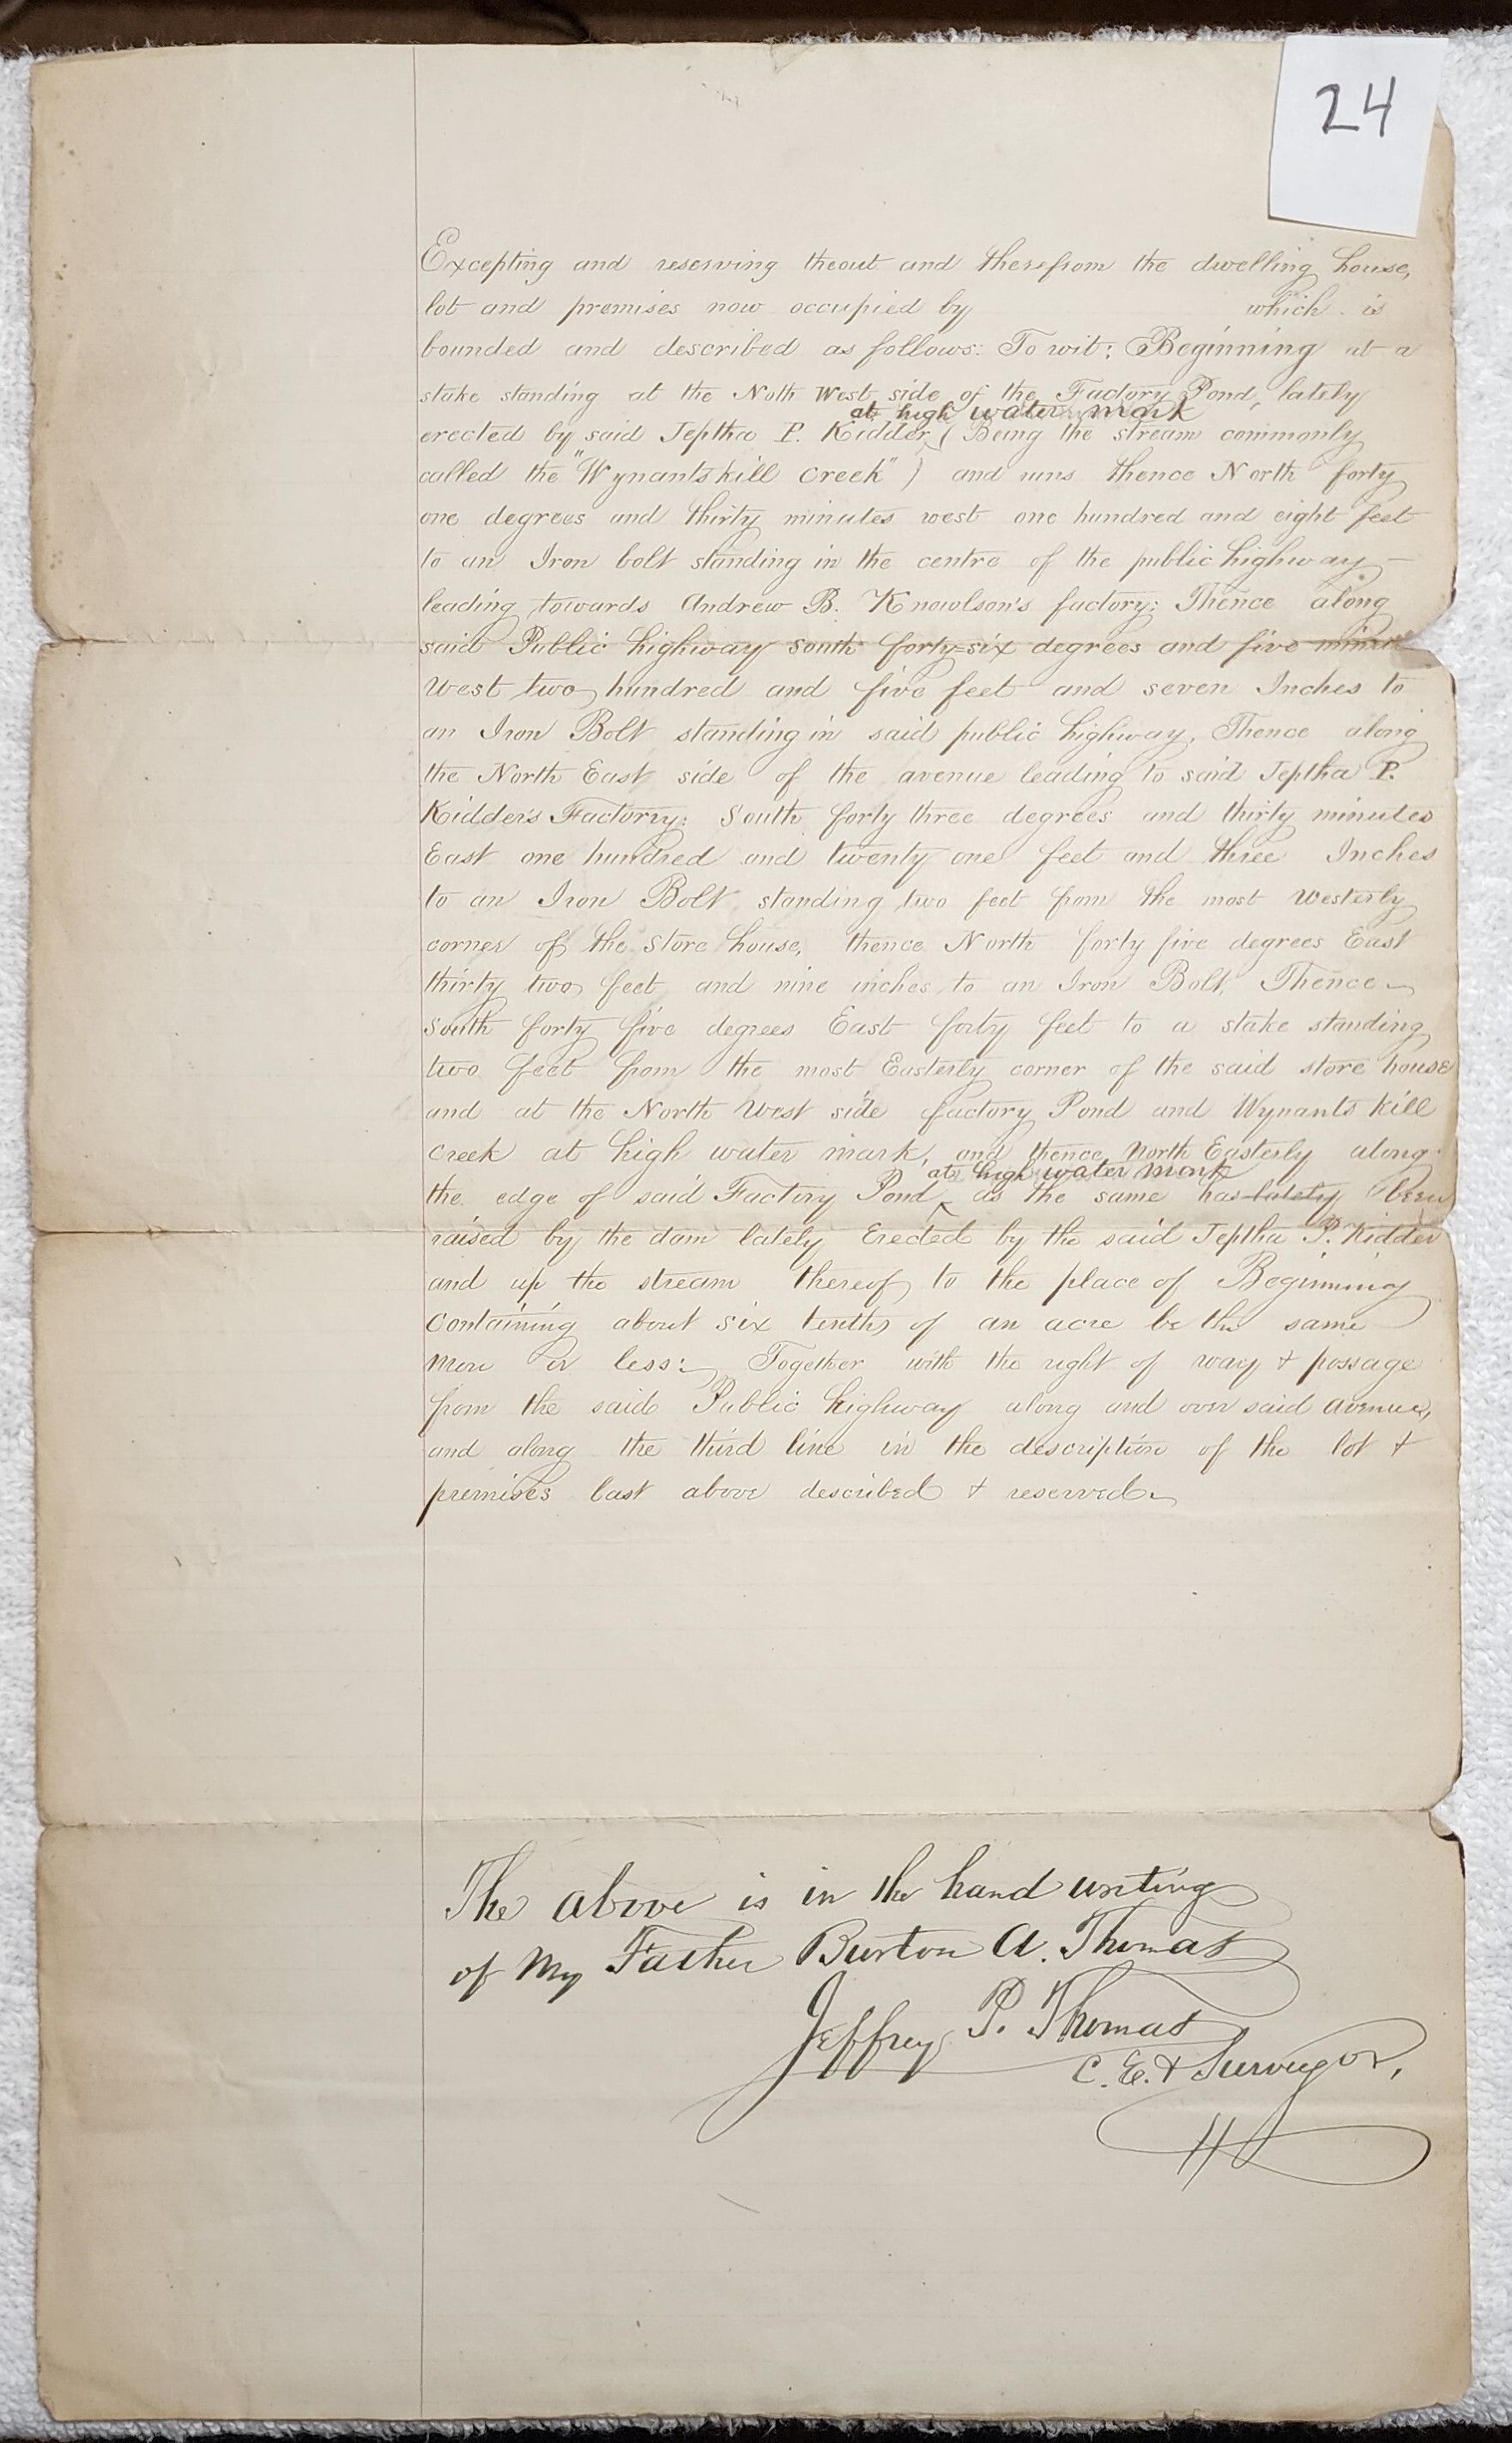 24
Excepting and reserving theout and therefrom the dwelling house,
lot and premises now occupied by which is
bounded and described as follows: To wit; Beginning at a
stake standing at the Noth West side of the Factory Pond, lately
at high water mark
erected by said Jeptha P. Kidder, (Being the stream commonly
called the "Wynantskill Creek") and runs thence North forty
one degrees and thirty minutes west one hundred and eight feet
to an Iron bolt standing in the centre of the public highway –
leading towards Andrew B. Knowlson's factory: Thence along
said Public highway south forty-six degrees and five minute
West two hundred and five feet and seven Inches to
an Iron Bolt standing in said public highway, Thence along
the North East side of the avenue leading to said Jeptha P.
Kidder's Factory: South forty three degrees and thirty minutes
East one hundred and twenty one feet and three Inches
to an Iron Bolt standing two feet from the most Westerly
corner of the store house, thence North forty five degrees East
thirty two feet and nine inches to an Iron Bolt, Thence
South forty five degrees East forty feet to a stake standing
two feet from the most Easterly corner of the said store house
and at the North West side factory Pond and Wynants kill
Creek at high water mark, and thence North Easterly along
at high water mark
the edge of said Factory Pond as the same has lately been
raised by the dam lately Erected by the said Jeptha P. Kidder
and up the stream thereof to the place of Beginning
Containing about six tenths of an acre be the same
more or less: Together with the right of way & passage
from the said Public highway along and over said avenue,
and along the third line in the description of the lot &
premises last above described & reserved
The above is in the hand writing
of my Father Burton A. Thomas
Jeffrey P. Thomas
C. E. & Surveyor,